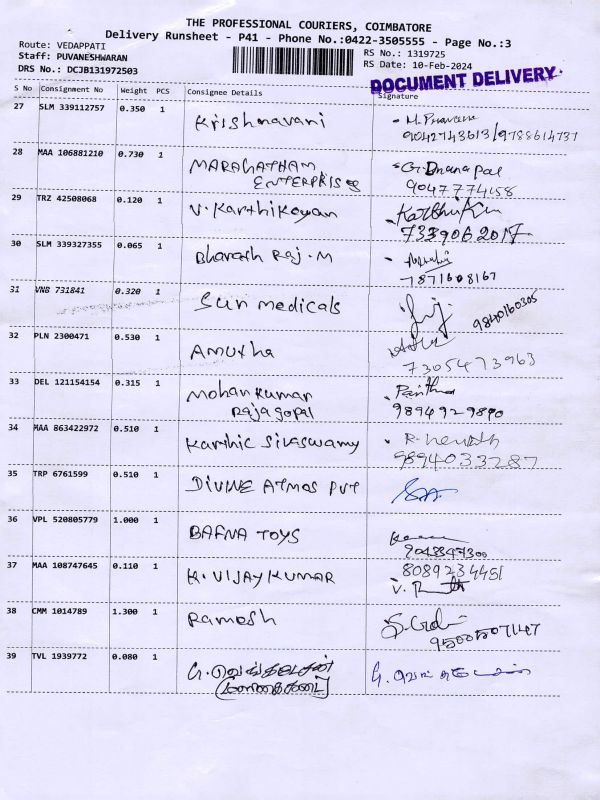 THE PROFESSIONAL COURIERS, COIMBATORE
Delivery Runsheet - P41 - Phone No.:0422-3505555 - Page No.:3
Route: VEDAPPATI
Staff: PUVANESHWARAN
DRS No.: DCJB131972503
RS No.: 1319725
RS Date: 10-Feb-2024
DOCUMENT DELIVERY
S No Consignment No Weight PCS Consignee Details Signature
27 SLM 339112757 0.350 1 Krishnavani M. Praveena
9042743613/9788614737
28 MAA 106881210 0.730 1 MARAGATHAM G. Dhanapal
ENTERPRISES 9047774158
29 TRZ 42508068 0.120 1 V. Karthikeyan
7339062017
30 SLM 339327355 0.065 1 Bharath Raj. M
7871608167
31 VNB 731841 0.320 1 Sun medicals 9840160305
32 PLN 2300471 0.530 1 Amutha
7305473963
33 DEL 121154154 0.315 1 Mohan Kumar
Rajagopal 9894929890
34 MAA 863422972 0.510 1 Karthic Sivaswamy
9894033287
35 TRP 6761599 0.510 1 DIVINE ATMOS PVT
36 VPL 520805779 1.000 1 BAFNA TOYS
9043847300
37 MAA 108747645 0.110 1 K. VIJAYKUMAR 8089234451
38 CMM 1014789 1.300 1 Ramesh
39 TVL 1939772 0.080 1